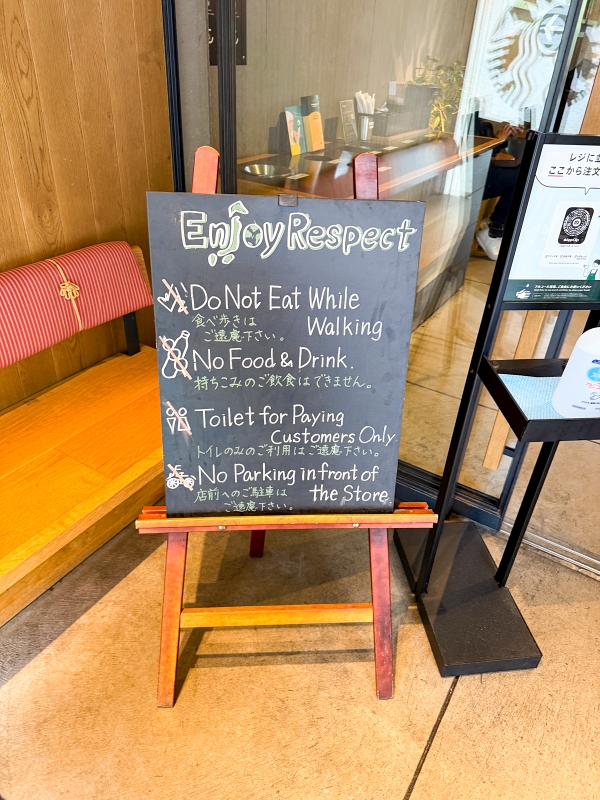 Enjoy Respect
Do Not Eat While
Walking
食べ歩きは
ご遠慮下さい。
No Food & Drink.
持ちこみのご飲食はできません。
Toilet for Paying
Customers Only
トイレのみのご利用はご遠慮下さい。
No Parking in front of
the Store.
店前へのご駐車は
ご遠慮下さい。
レジに
ここから注文